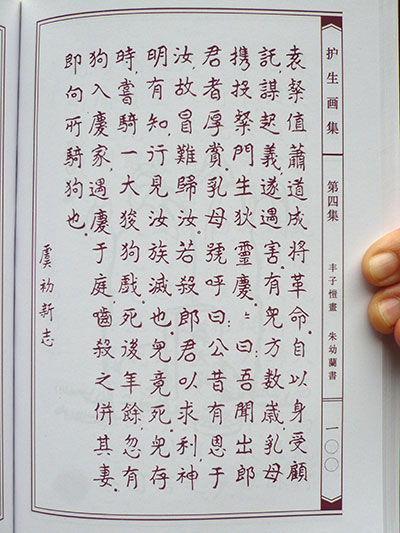 护生画集 第四集 丰子愷畫 朱幼蘭書 一〇〇
袁粲值蕭道成將革命。自以身受顧
託，謀起義，遂遇害。有兒方數歲，乳母
携投粲門生狄靈慶。々々曰：吾聞出郎
君者厚賞。乳母號呼曰：公昔有恩于
汝，故冒難歸汝。若殺郎君以求利，神
明有知，行見汝族滅也。兒竟死。兒存
時，嘗騎一大狻狗戲。死後年餘，忽有
狗入慶家，遇慶于庭，嚙殺之，併其妻。
即向所騎狗也。
虞初新志